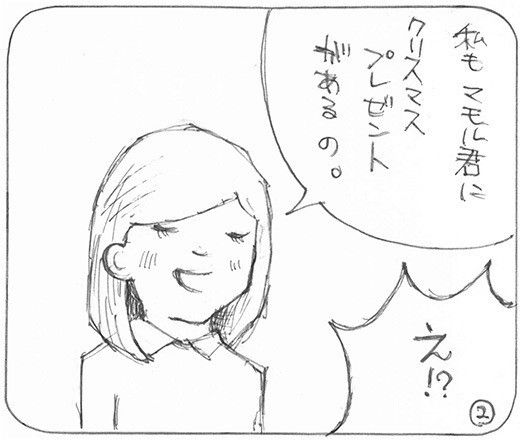 私もマモル君に
クリスマス
プレゼント
があるの。
え!?
2